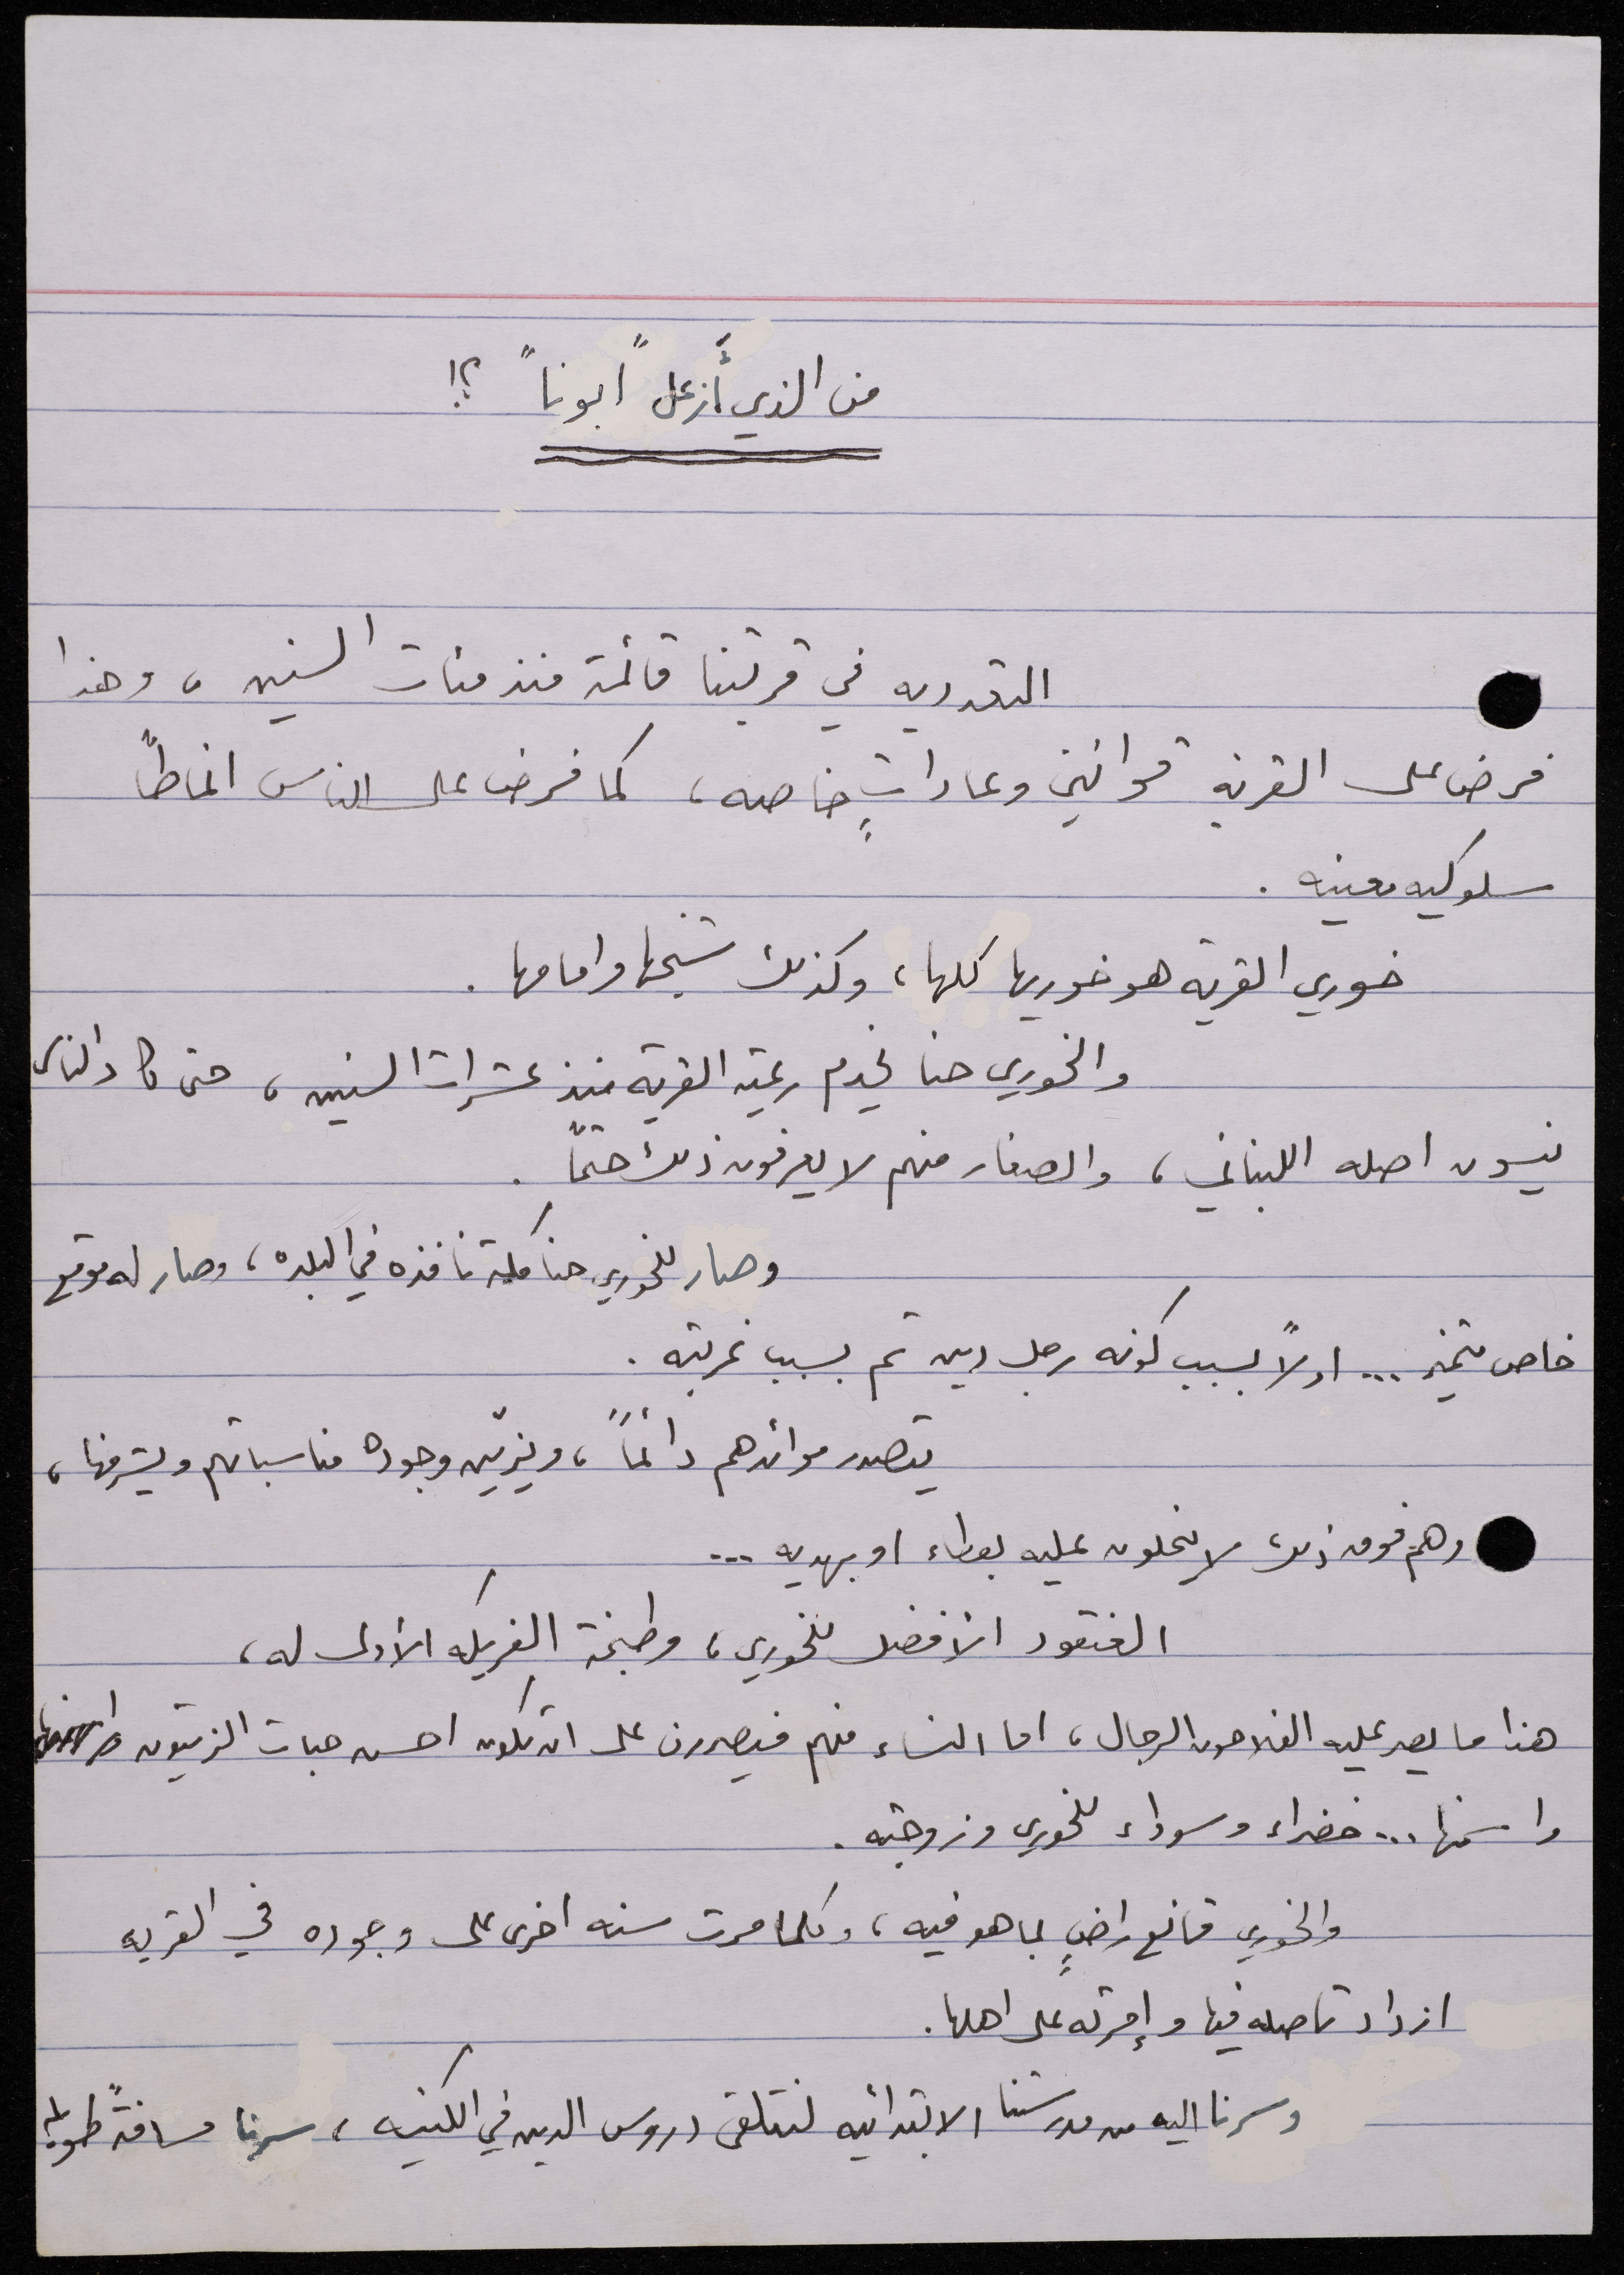 من الذي أزعل "ابونا" ؟!
التعدديه في قريتنا قائمة منذ مئات السنين ، وهذا
فرض على القرية قوانين وعاداتٍ خاصه ، كما فرض على الناس انماطاً
سلوكيه معينه .
خوري القرية هو خوريها كلها ، وكذلك شيخها وامامها .
والخوري حنا يخدم رعية القرية منذ عشرات السنين ، حتى كاد الناس
ينسون اصله اللبناني ، والصغار منهم لا يعرفون ذلك حتماً .
وصار للخوري حنا كلمة نافذه في البلده ، وصار له موقع
خاص متميز ... اولاً بسبب كونه رجل دين ثم بسبب غربته .
يتصدر موائدهم دائماً ، ويزيّن وجوده مناسباتهم ويشرفها ،
وهم فوق ذلك لا يبخلون عليه بعطاء او بهديه ...
العنقود الأفضل للخوري ، وطبخة الفريكه الأولى له ،
هذا ما يصر عليه الفلاحون الرجال ، اما النساء منهم فيصررن على ان تكون احسن حبات الزيتون
واسمنها ... خضراء وسوداء للخوري وزوجته .
والخوري قانع راضٍ بما هو فيه ، وكلما مرت سنه اخرى على وجوده في القريه
ازداد تاصله فيها وإمرته على اهلها .
وسرنا اليه من مدرستنا الابتدائيه لنتلقى دروس الدين في الكنيسه ، سرنا مسافةً طويلة